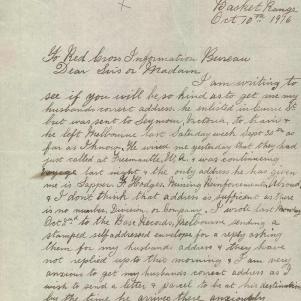 Basket Range
Oct 10th 1916
To Red Cross Information Bureau
Dear Sirs or Madam
I am writing to
see if you will be so kind as to get me my
husbands correct address. he enlisted in Currie St
but was sent to Seymour, Victoria, to train &
he left Melbourne last Saturday week Sept 30th as
far as I know. He wired me yesterday that they had
just called at Freemantle, W.A. & was continueing
voyage last night, & the only address he has given
me is Sapper F. Hodges. Mining Reinforcements Abroad,
& I don't think that address is sufficient as there
is no number, Division, or Company, I wrote last Monday
Oct 8th to the Base Records, Melbourne sending a
stamped self addressed envelope for a reply asking
them for my husbands address & they have
not replied up to this morning & I am very
anxious to get my husbands correct address as I
wish to send a letter, & parcel to be at his destination
by the time he arrives there